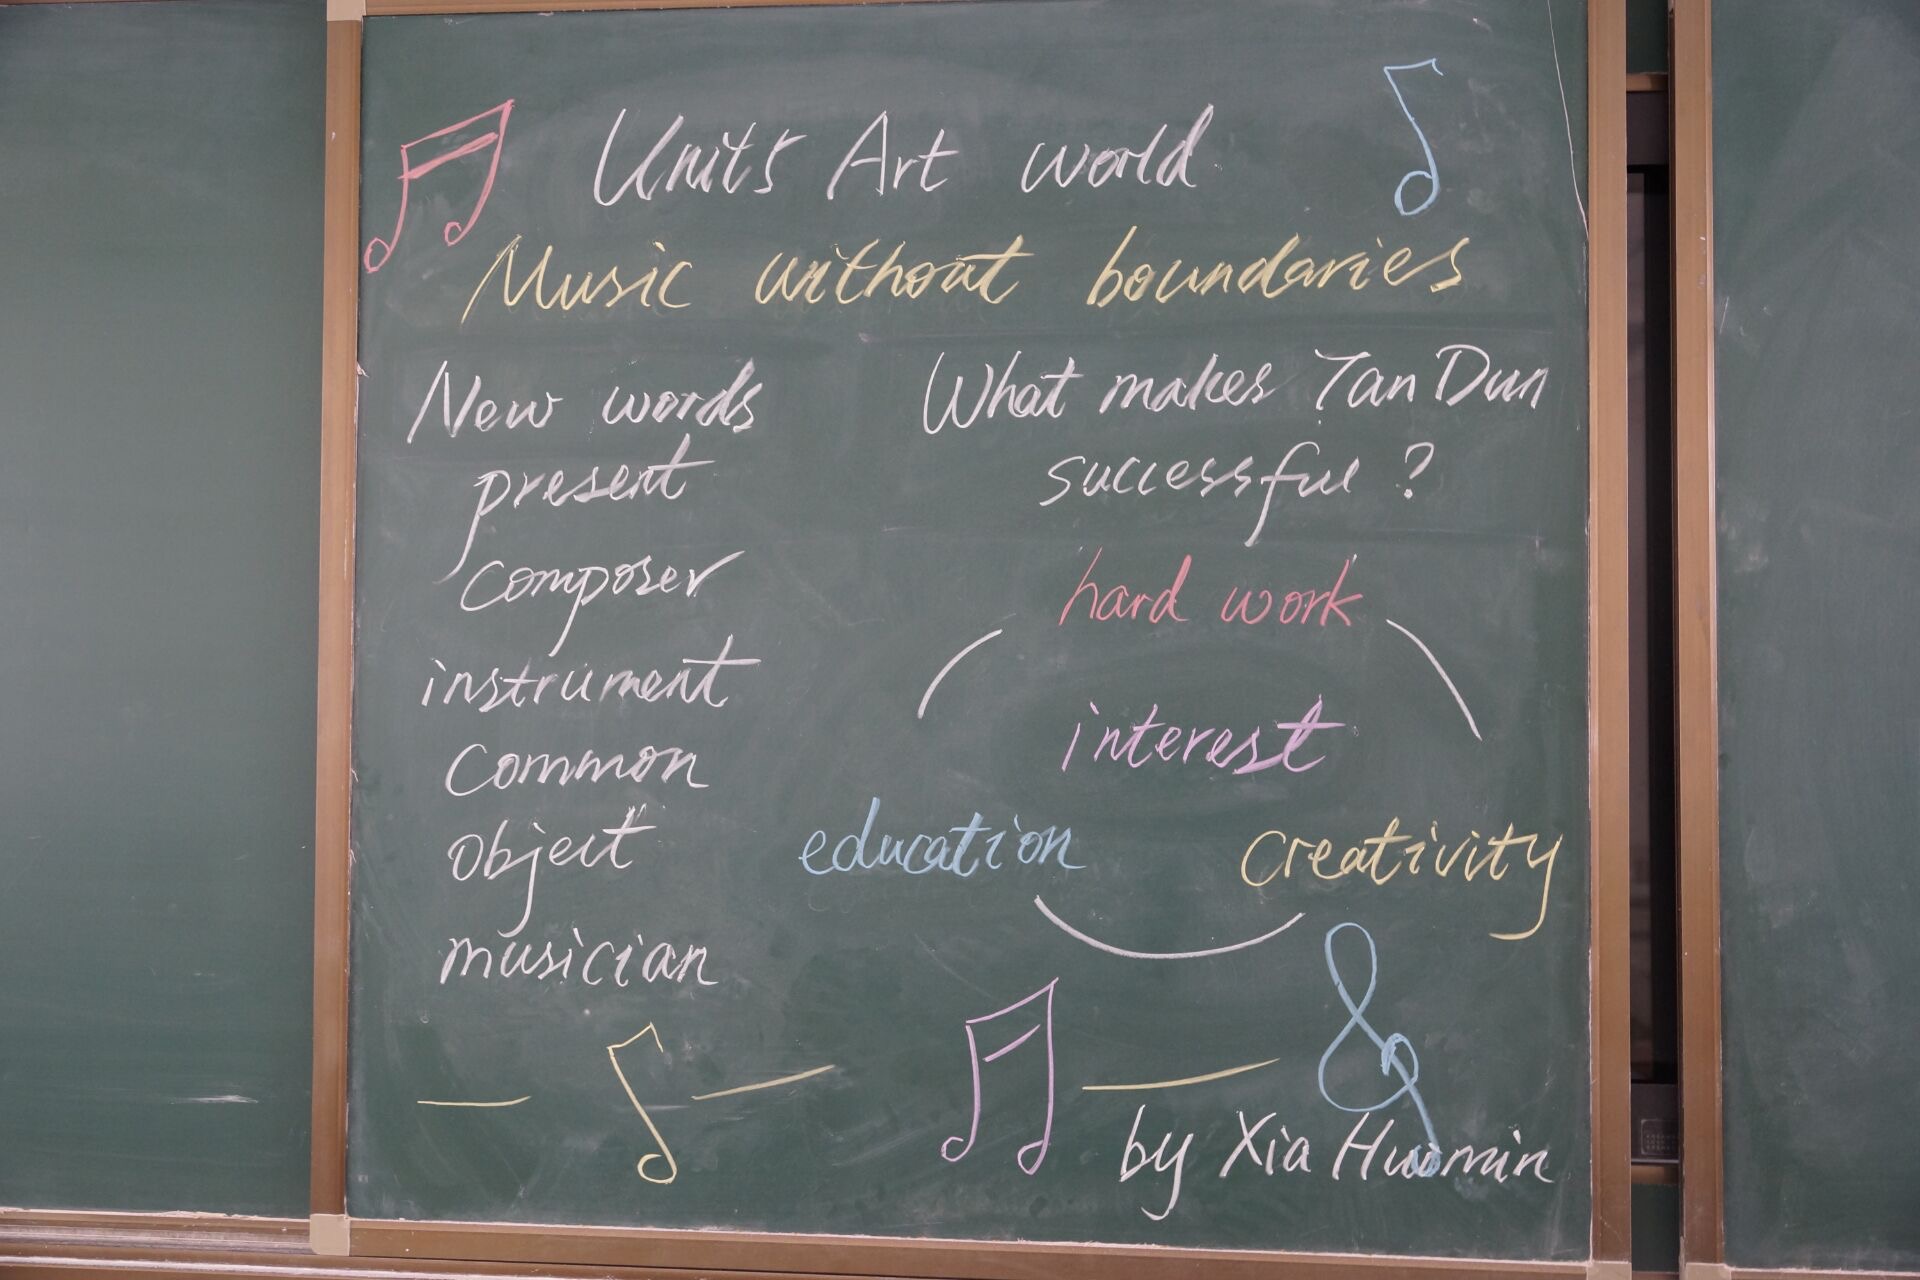 Unit5 Art world
Music without boundaries
New words
present
composer
instrument
common
object
musician
What makes Tan Dun
successful?
hard work
interest
education
creativity
by Xia Huomin